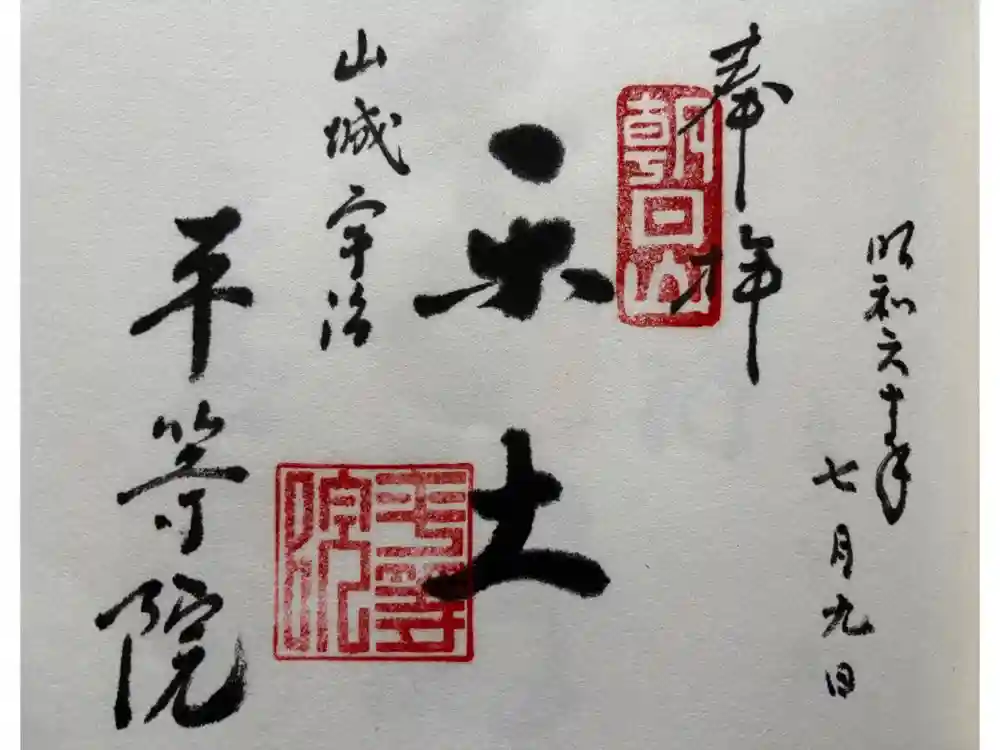 昭和六十年
七月九日
奉拝
朝日山
楽土
平等院
山城宇治
平等院